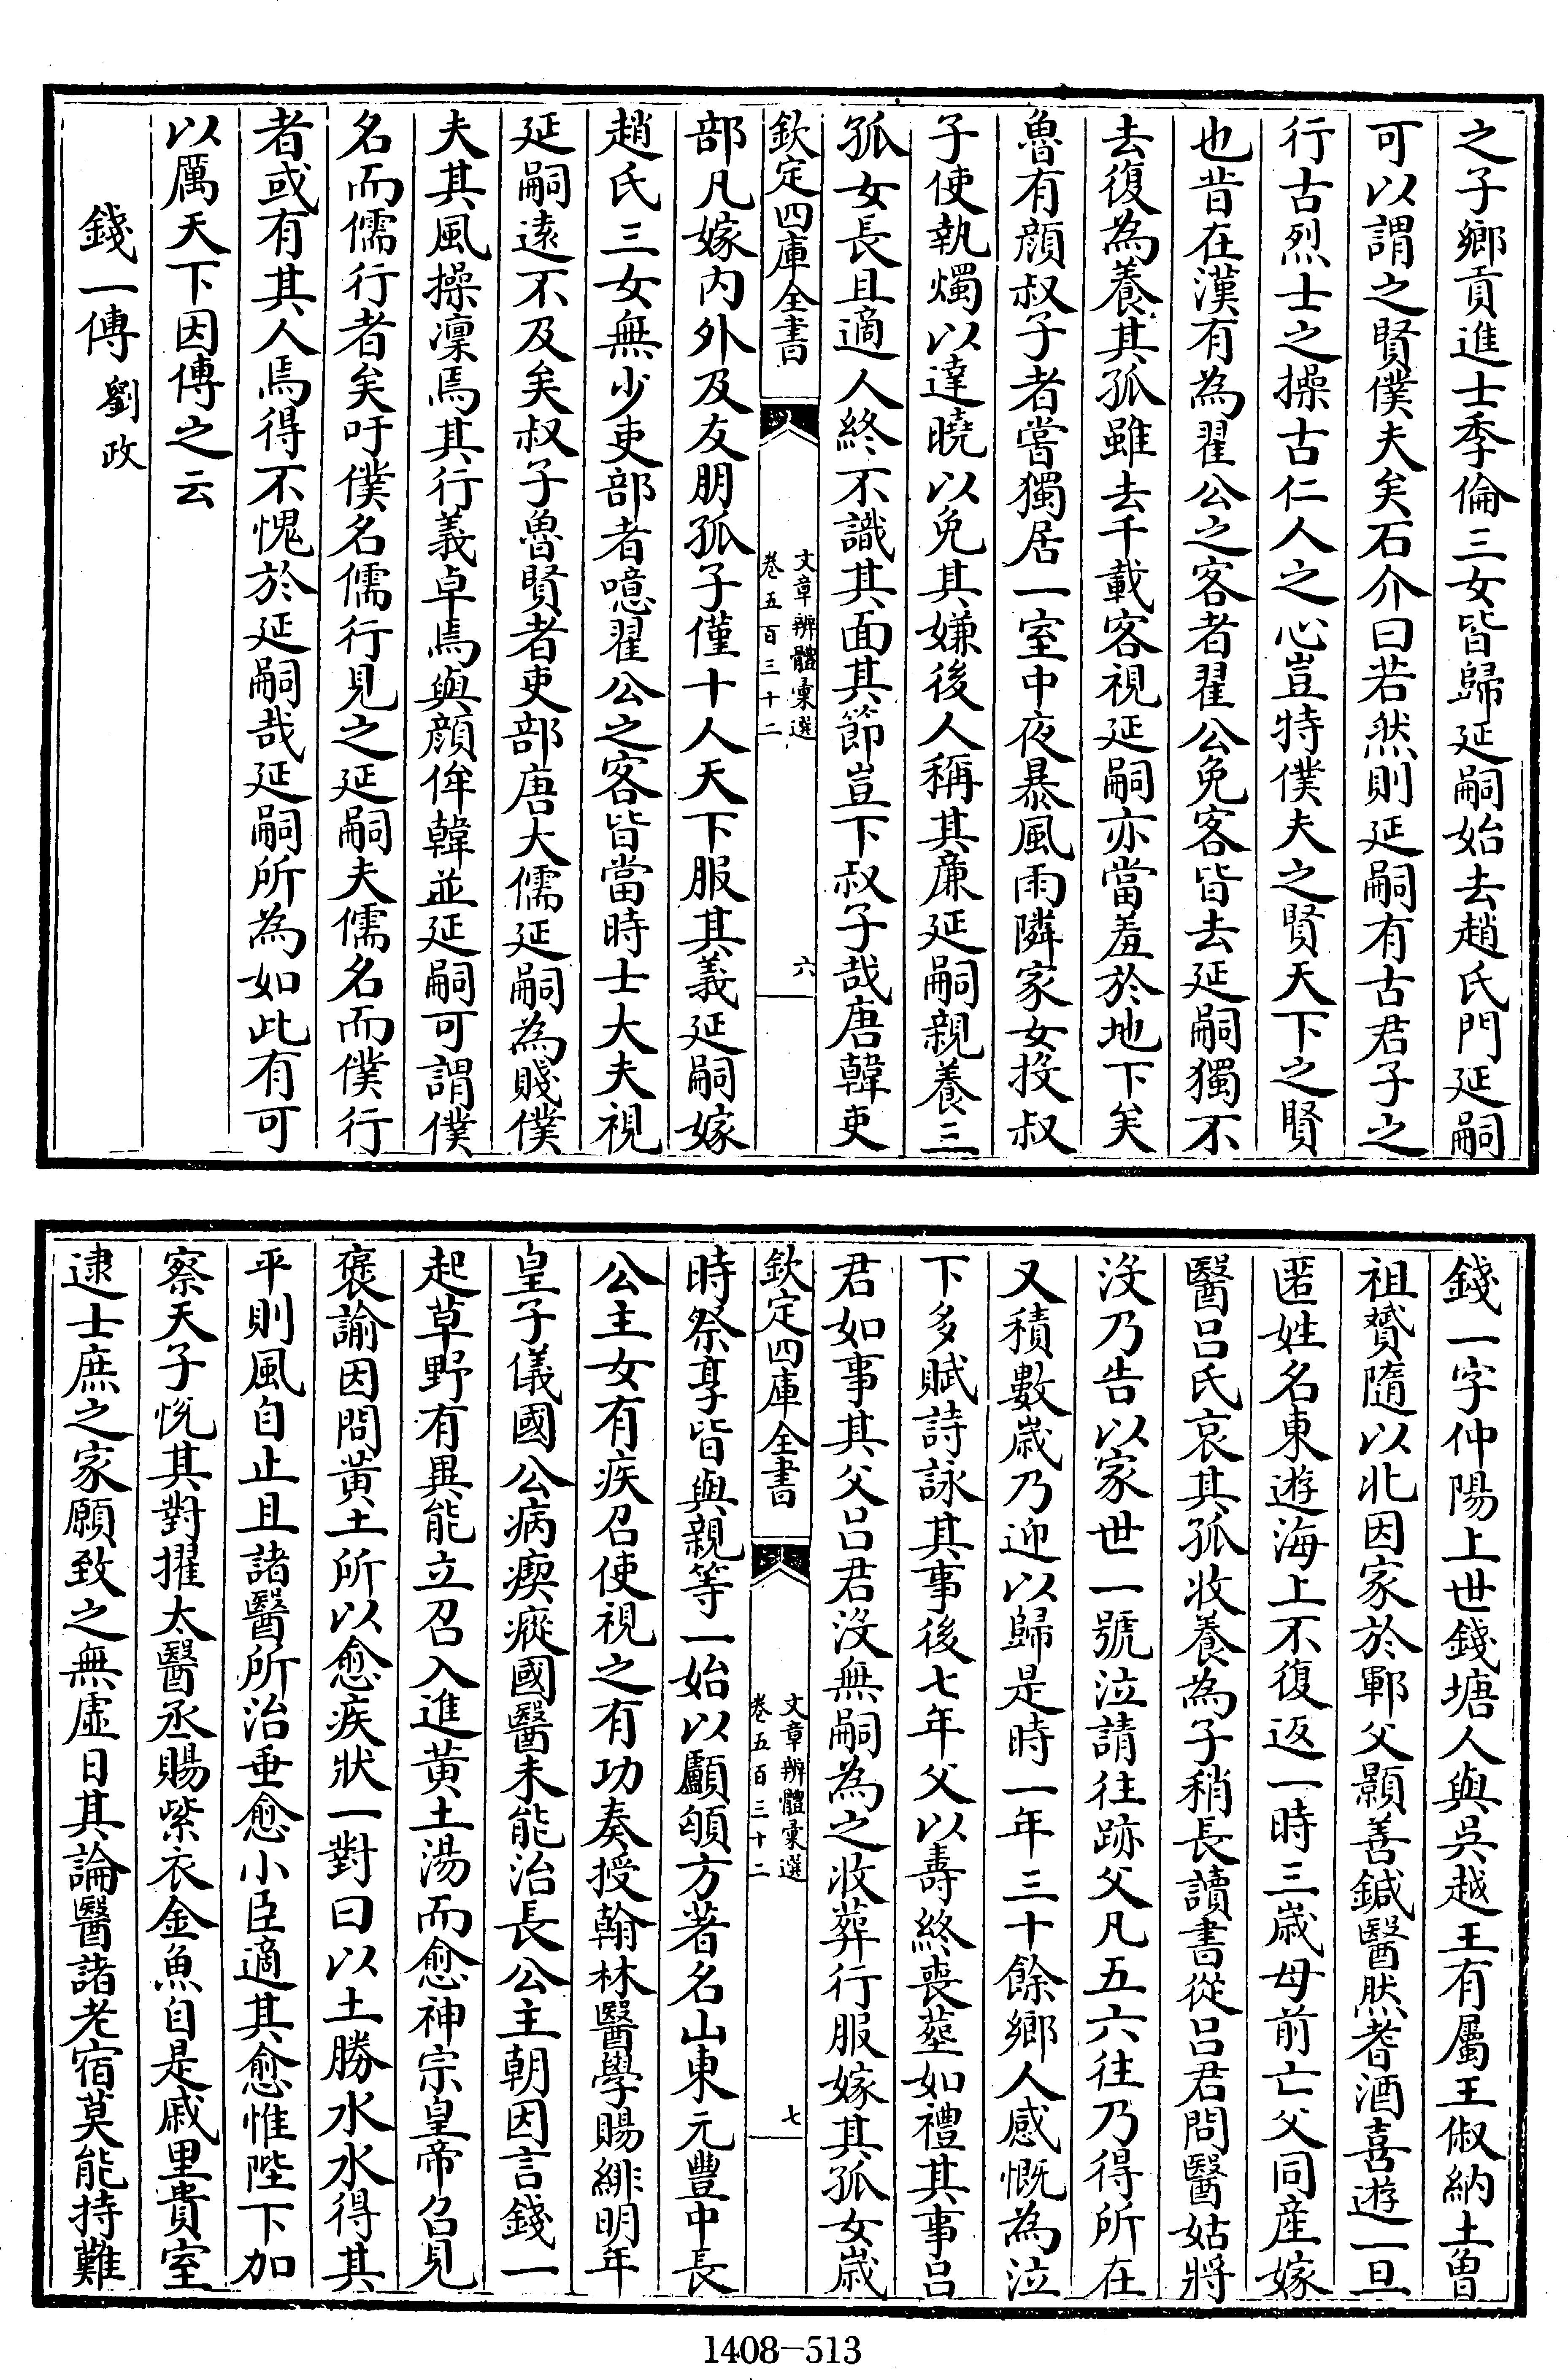 之子鄉貢進士季倫三女皆歸延嗣始去趙氏門延嗣
可以謂之賢僕夫矣石介曰若然則延嗣有古君子之
行古烈士之操古仁人之心豈特僕夫之賢天下之賢
也昔在漢有為翟公之客者翟公免客皆去延嗣獨不
去復為養其孤雖去千載客視延嗣亦當羞於地下矣
魯有顔叔子者嘗獨居一室中夜暴風雨隣家女投叔
子使執燭以達曉以免其嫌後人稱其廉延嗣親養三
孤女長且適人終不識其面其節豈下叔子哉唐韓吏
欽定四庫全書
文章辨體彙選
卷五百三十二
六
部凡嫁内外及友朋孤子僅十人天下服其義延嗣嫁
趙氏三女無少吏部者噫翟公之客皆當時士大夫視
延嗣遠不及矣叔子魯賢者吏部唐大儒延嗣為賤僕
夫其風操凜焉其行義卓焉與顔侔韓並延嗣可謂僕
名而儒行者矣吁僕名儒行見之延嗣夫儒名而僕行
者或有其人焉得不愧於延嗣哉延嗣所為如此有可
以厲天下因傳之云
錢一傳 劉政
錢一字仲陽上世錢塘人與吳越王有屬王俶納土曾
祖贇隨以北因家於鄆父顥善鍼醫然耆酒喜遊一旦
匿姓名東遊海上不復返一時三歲母前亡父同産嫁
醫呂氏哀其孤收養為子稍長讀書從呂君問醫姑將
沒乃告以家世一號泣請往跡父凡五六往乃得所在
又積數歲乃迎以歸是時一年三十餘鄉人感慨為泣
下多賦詩詠其事後七年父以壽終喪塟如禮其事呂
君如事其父呂君沒無嗣為之收葬行服嫁其孤女歲
欽定四庫全書
文章辨體彙選
卷五百三十二
七
時祭享皆與親等一始以顱頧方著名山東元豐中長
公主女有疾召使視之有功奏授翰林醫學賜緋明年
皇子儀國公病瘈瘲國醫未能治長公主朝因言錢一
起草野有異能立召入進黄土湯而愈神宗皇帝召見
褒諭因問黄土所以愈疾狀一對曰以土勝水水得其
平則風自止且諸醫所治垂愈小臣適其愈惟陛下加
察天子悅其對擢太醫丞賜紫衣金魚自是戚里貴室
逮士庶之家願致之無虛日其論醫諸老宿莫能持難
1408-513